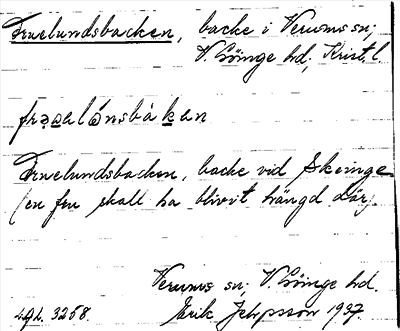 Fruelundsbacken, backe i Verums sn;
V. Göinge hd; Krist. l.
Fruelundsbacken, backe vid Skeinge
(en fru skall ha blivit hängd där).
Verums sn, V. Göinge hd.
3258. Erik Jeppsson 1937.